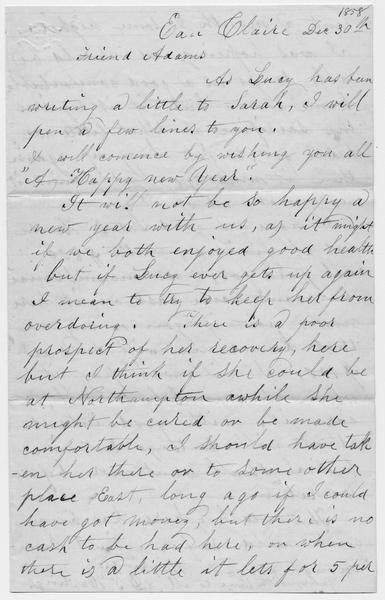 1858
Eau Claire Dec 30th
Friend Adams
As Lucy has been
writing a little to Sarah, I will
pen a few lines to you.
I will comence by wishing you all
"A Happy new Year".
It will not be so happy a
new year with us, as it might
if we both enjoyed good health
but if Lucy ever gets up again
I mean to try to keep her from
overdoing. There is a poor
prospect of her recovery, here
but I think if she could be
at Northampton awhile she
might be cured or be made
comfortable, I should have tak
-en her there or to some other
place East, long ago if I could
have got money, but there is no
cash to be had here, or when
there is a little it lets for 5 per